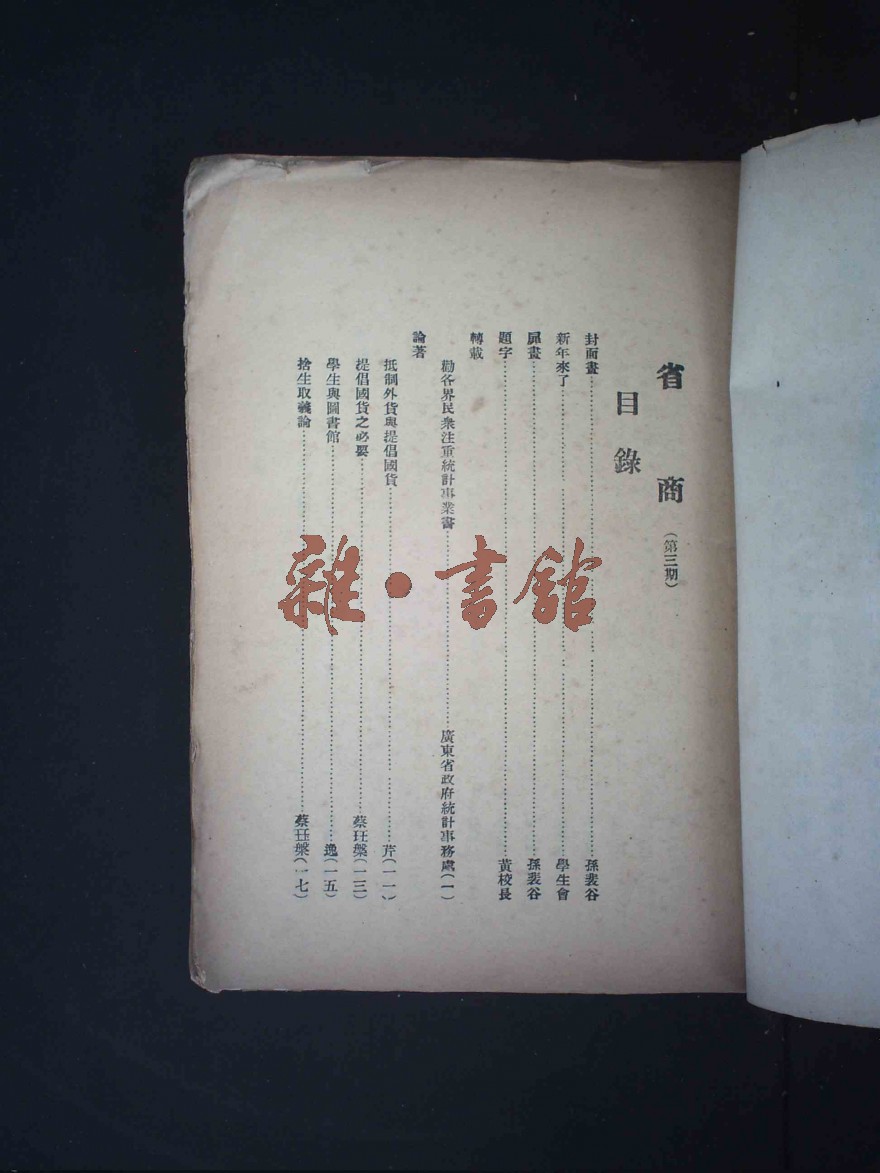 省商(第三期)
目錄
封面畫……孫裴谷
新年來了……學生會
屌畫……孫裴谷
題字……黃校長
轉載
勸各界民衆注重統計事業書……廣東省政府統計事務處(一)
論著
抵制外貨與提倡國貨……芹(一一)
提倡國貨之必要……蔡玨槃(一三)
學生與圖書館……逸(一五)
捨生取義論……蔡玨槃(一七)
雜·書館